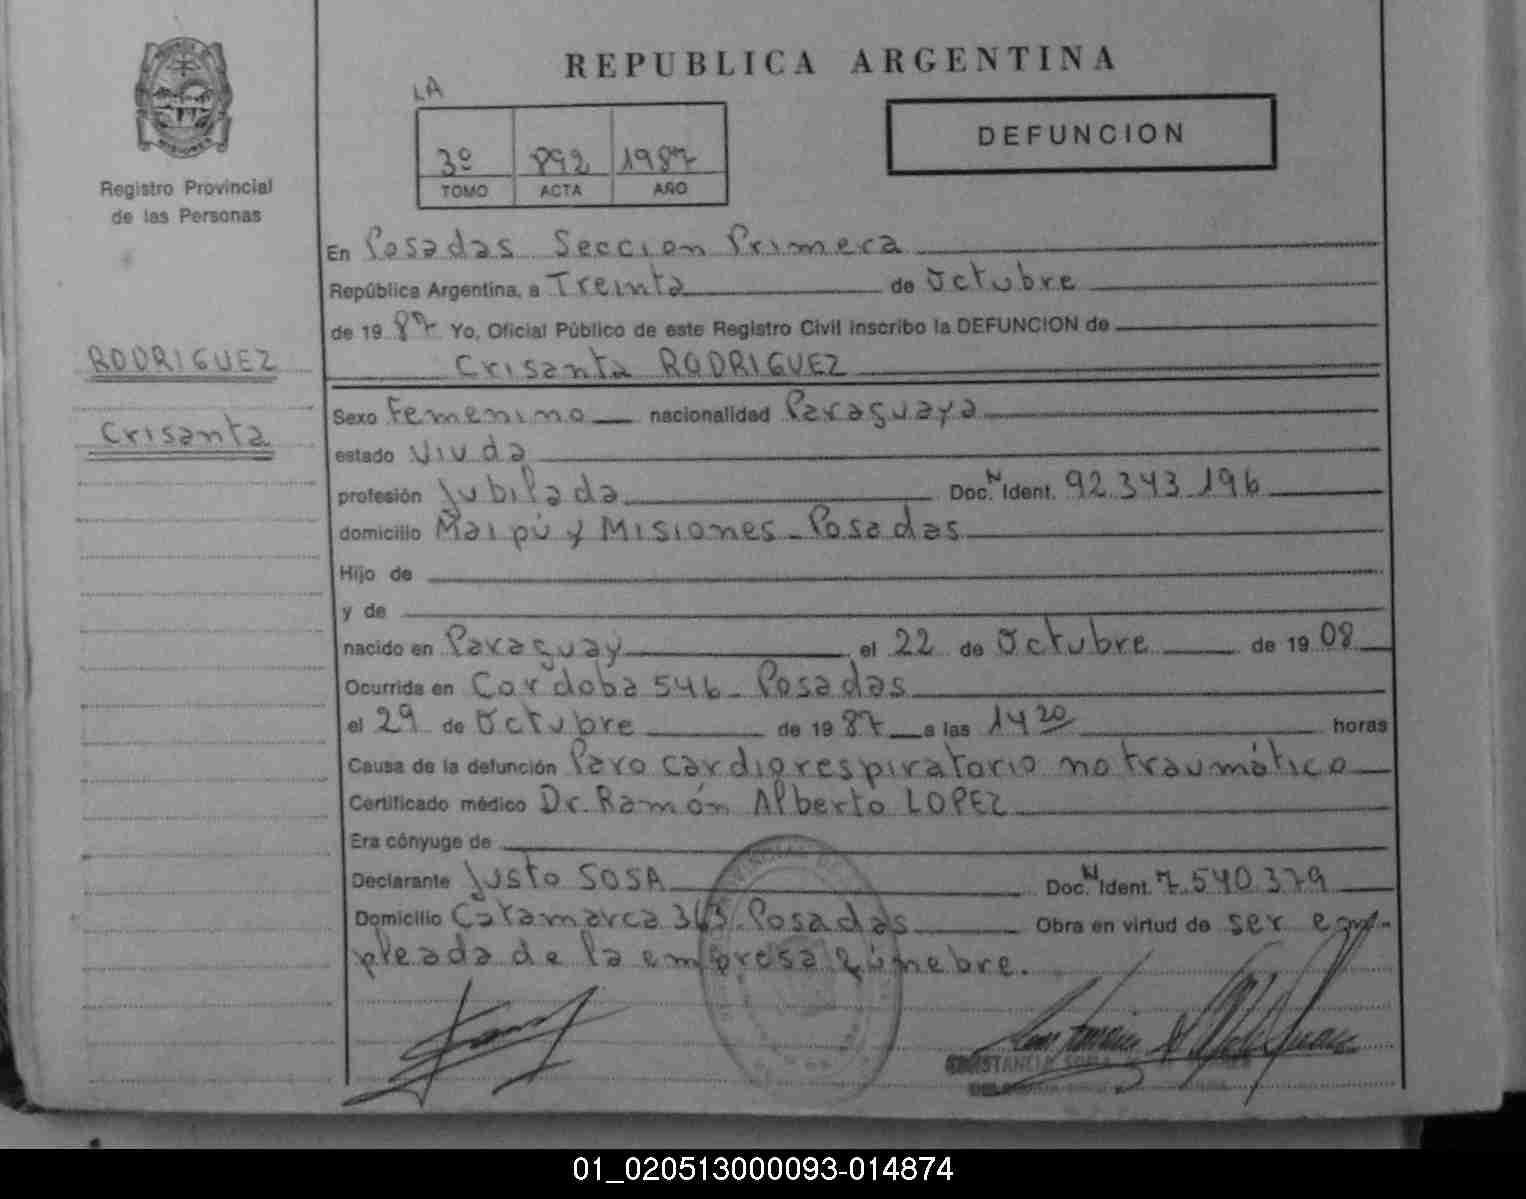 REPUBLICA ARGENTINA
LA
3º 892 1987
TOMO ACTA AÑO
DEFUNCION
Registro Provincial
de las Personas
RODRIGUEZ
Crisanta
En Posadas Seccion Primera
República Argentina, a Treinta de Octubre
de 19 87 Yo, Oficial Público de este Registro Civil inscribo la DEFUNCION de
Crisanta RODRIGUEZ
Sexo Femenino nacionalidad Paraguaya
estado Viuda
profesión Jubilada Doc. N Ident. 92.343.196
domicilio Maipú y Misiones - Posadas
Hijo de
y de
nacido en Paraguay el 22 de Octubre de 19 08
Ocurrida en Cordoba 546 - Posadas
el 29 de Octubre de 19 87 a las 14 20 horas
Causa de la defunción Paro cardiorespiratorio no traumático
Certificado médico Dr. Ramón Alberto LOPEZ
Era cónyuge de
Declarante Justo SOSA Doc. N Ident. 7.540.379
Domicilio Catamarca 363 - Posadas Obra en virtud de ser em-
pleada de la empresa fúnebre.
01_020513000093-014874